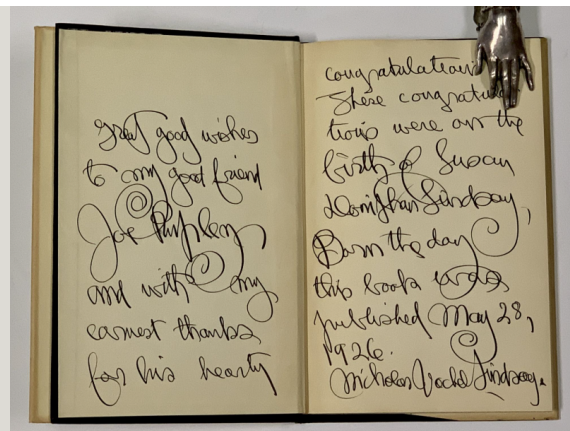 Great good wishes
to my good friend
Joe
and with my
earnest thanks
for his hearty
congratulations
These congratula
tions were on the
birth of Susan
Doniphan Lindsay,
Born the day
this book was
published May 28,
1926.
Nicholas Vachel Lindsay.